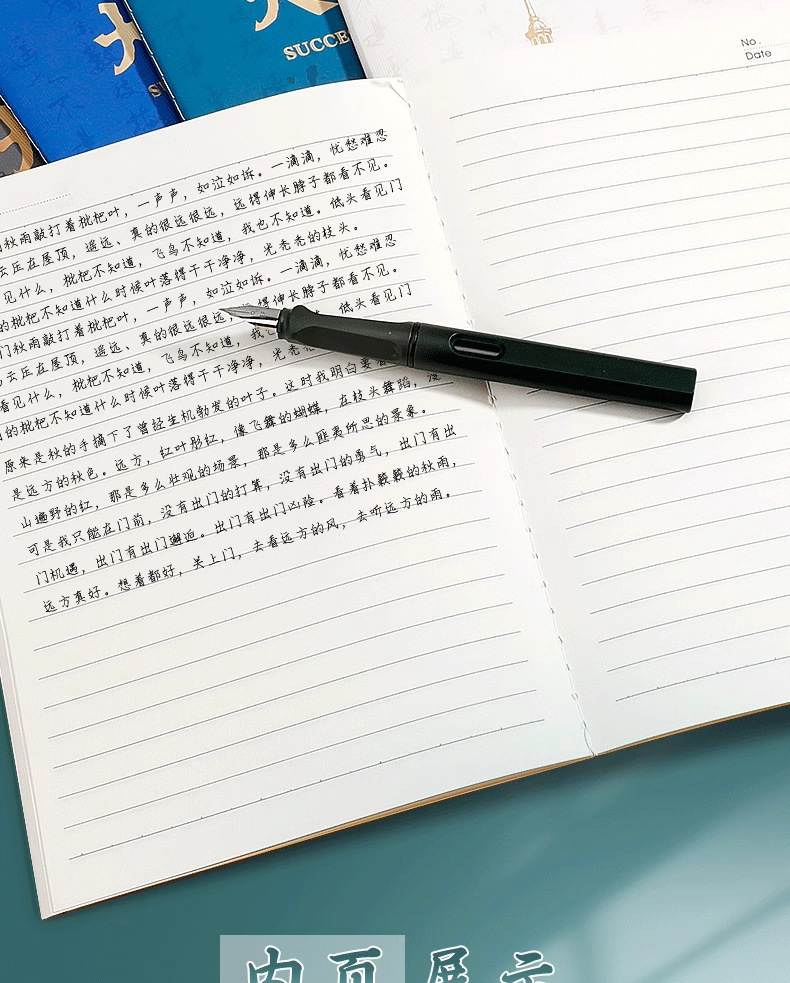 SUCCE
No.
Date
秋雨敲打着枇杷叶，一声声，如泣如诉。一滴滴，忧愁难忍
云压在屋顶，遥远、真的很远很远，远得伸长脖子都看不见。
见什么，枇杷不知道，飞鸟不知道，我也不知道。低头看见门
的枇杷不知道什么时候叶落得干干净净，光秃秃的枝头。
门秋雨敲打着枇杷叶，一声声，如泣如诉。一滴滴，忧愁难忍
云压在屋顶，遥远、真的很远很远，得伸长脖子都看不见。
看见什么，枇杷不知道，飞鸟不知道，我 低头看见门
的枇杷不知道什么时候叶落得干干净净，光秃
原来是秋的手摘下了曾经生机勃发的叶子。这时我明白要
是远方的秋色。远方，红叶彤红，像飞舞的蝴蝶，在枝头舞蹈，漫
山遍野的红，那是多么壮观的场景，那是多么匪夷所思的景象。
可是我只能在门前，没有出门的打算，没有出门的勇气，出门有出
门机遇，出门有出门邂逅。出门有出门凶险。看着扑簌簌的秋雨，
远方真好。想着都好，关上门，去看远方的风，去听远方的雨。
内页展示